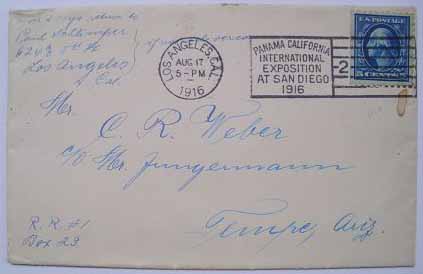 days return to
Paul
Los Angeles
Cal.
LOS ANGELES, CAL.
AUG 17
5-PM
1916
PANAMA CALIFORNIA
INTERNATIONAL
EXPOSITION
AT SAN DIEGO
1916
2
U.S. POSTAGE
5 CENTS 5
Mr.
C. R. Weber
c/o Mr. Jungermann
R. R. #1
Box 23
Tempe, Ariz.